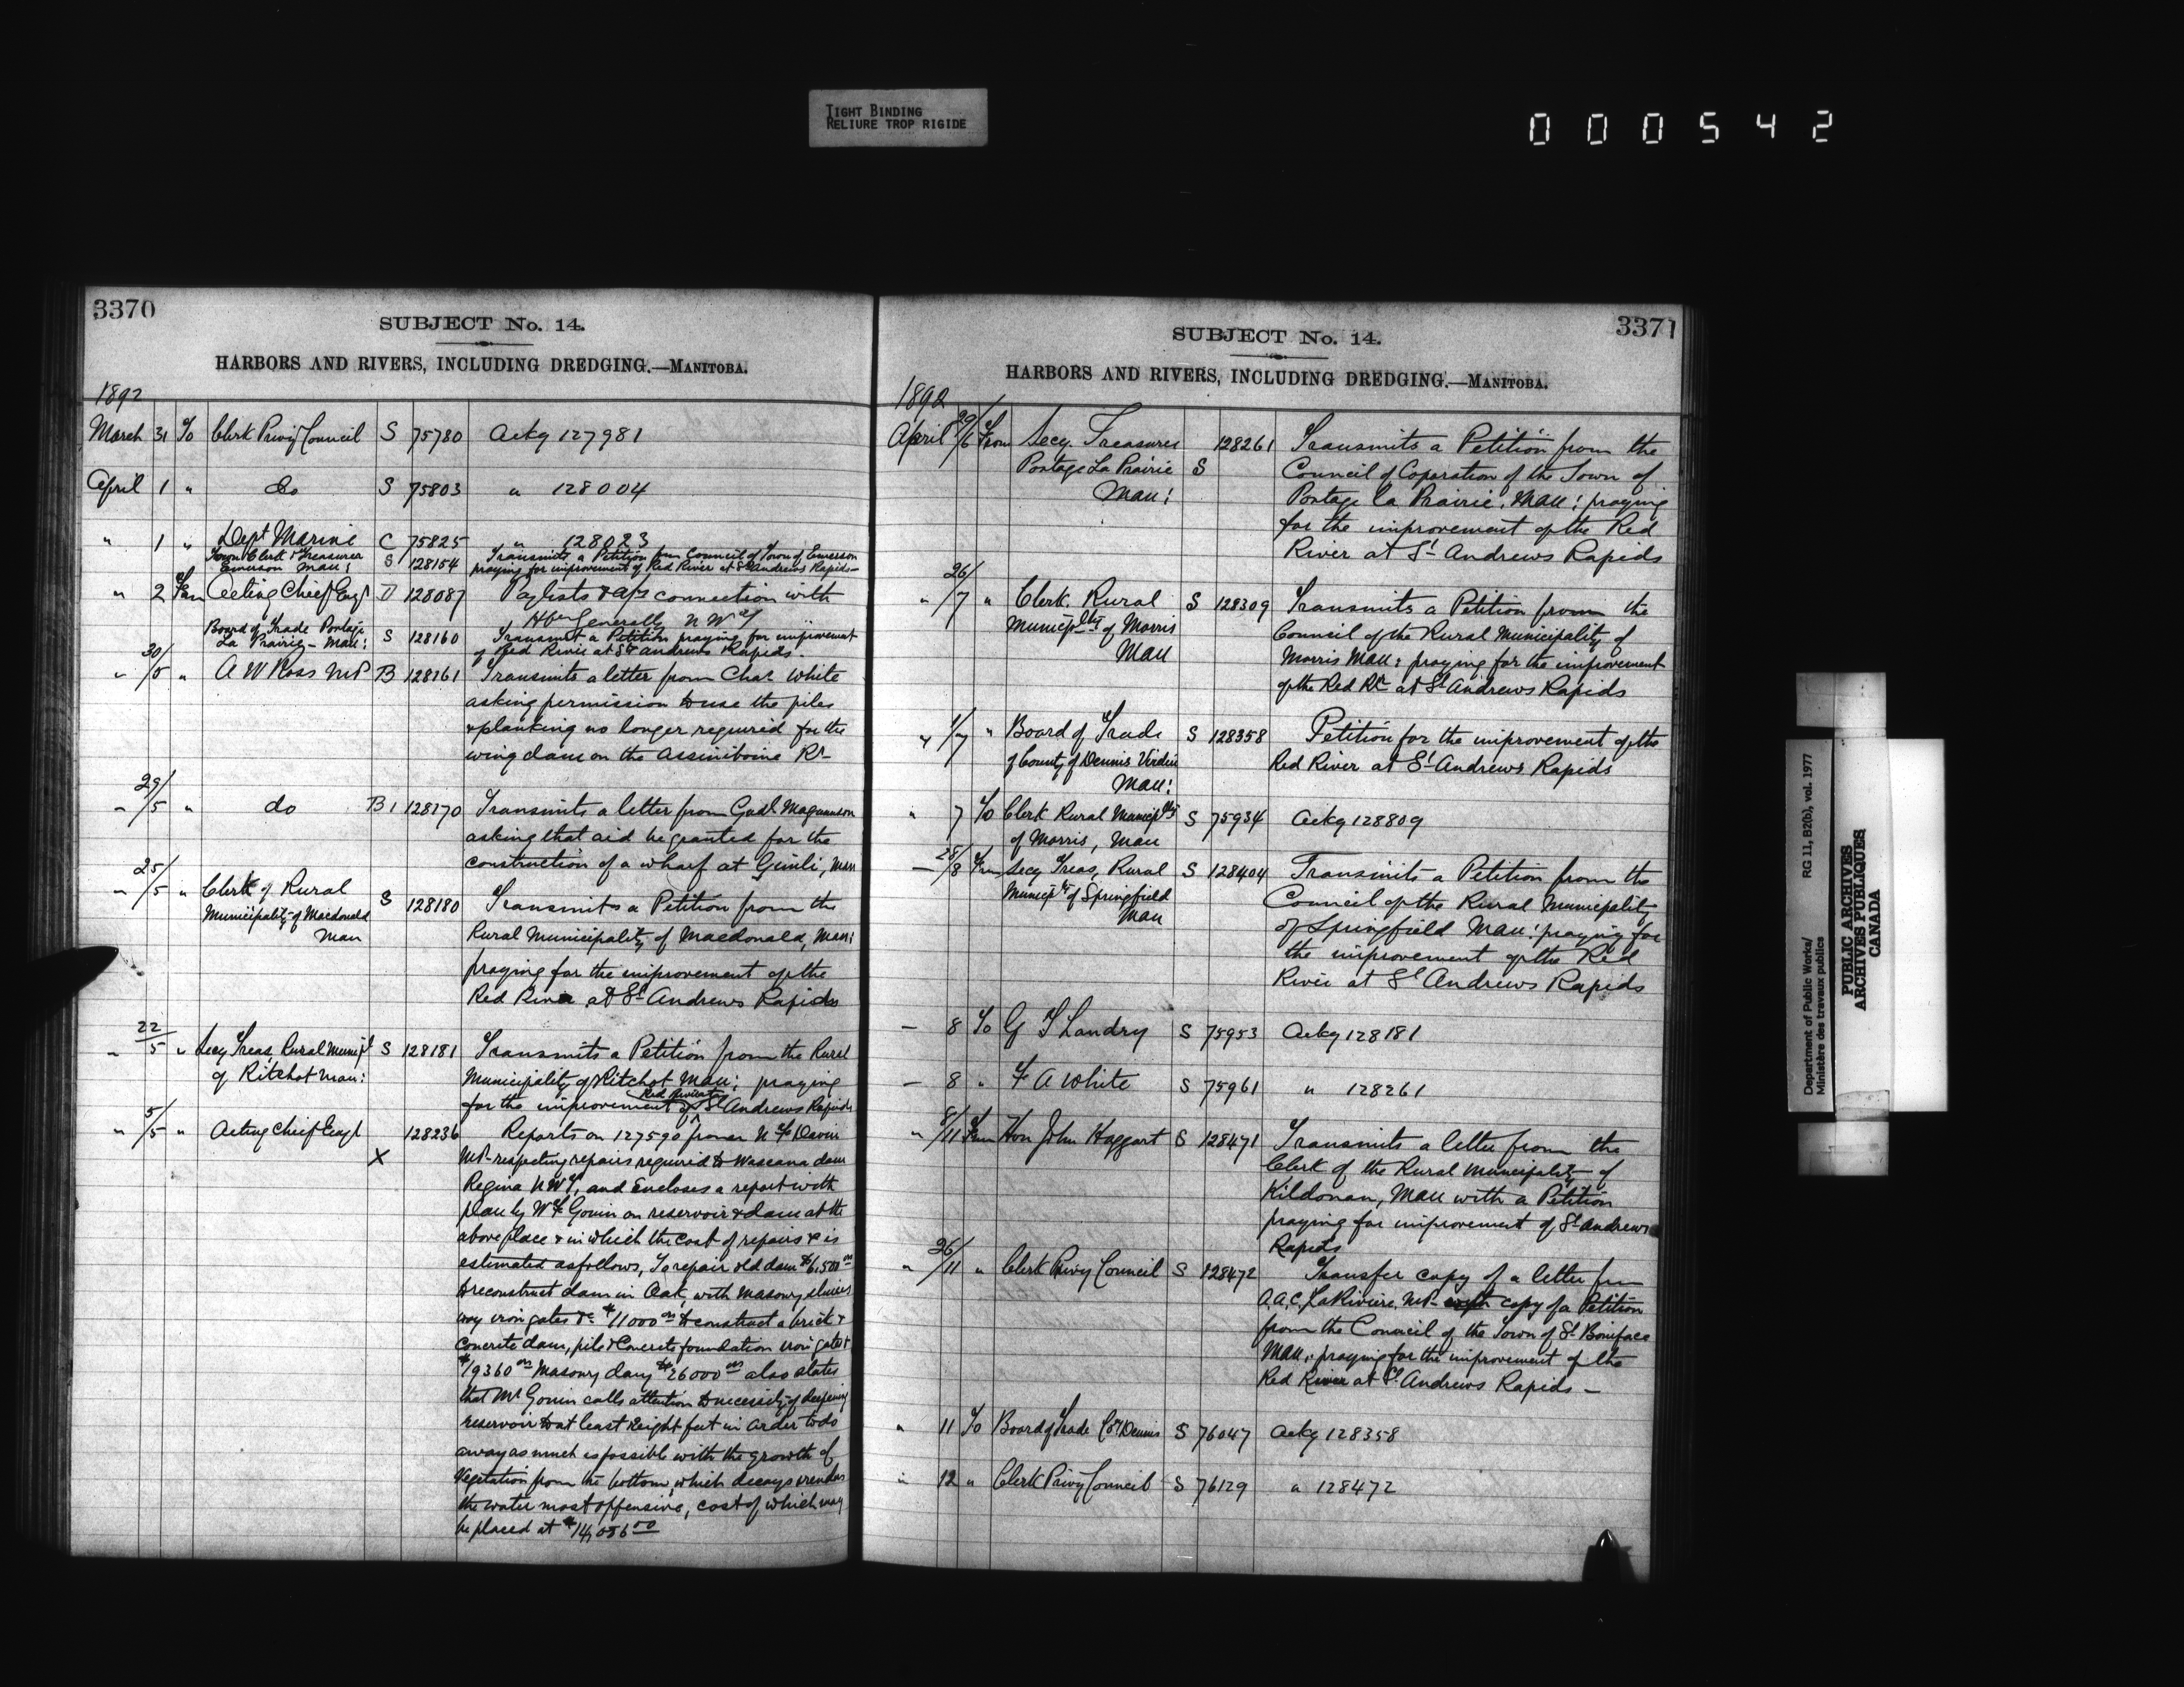 TIGHT BINDING
RELIURE TROP RIGIDE
000542
3370
SUBJECT No. 14.
HARBORS AND RIVERS, INCLUDING DREDGING.—MANITOBA.
1892
March 31 To Clerk Privy Council S 75780 Ackg 127981
April 1 " do S 75803 " 128004
" 1 " Dept Marine C 75825 " 128023
Town Clerk & Treasurer Transmits a Petition from Council of Town of Emerson
Emerson Man: S 128154 praying for improvement of Red River at St Andrews Rapids—
" 2 From Acting Chief Engr D 128087 Paylists & a/cs connection with
Generally N W Ty
Board of Trade Portage
La Prairie - Man: S 128160 Transmit a Petition praying for improvement
of Red River at St Andrews Rapids.
" 30/5 " A W Ross MP B 128161 Transmits a letter from Chas White
asking permission to use the piles
& planking no longer required for the
wing dam on the Assiniboine Rr
" 29/5 " do B 128170 Transmits a letter from Magnusson
asking that aid be granted for the
construction of a wharf at Gimli, Man
" 25/5 " Clerk of Rural
Municipality of Macdonald
Man S 128180 Transmits a Petition from the
Rural Municipality of Macdonald, Man:
praying for the improvement of the
Red River at St Andrews Rapids
" 22/5 " Secy Treas, Rural Municipl S 128181 Transmits a Petition from the Rural
of Ritchot Man: Municipality of Ritchot Man: praying
Red River at
for the improvement of St Andrews Rapids
" 5/5 " Acting Chief Engr 128236 Reports on 127590 from N F Davin
X MP- respecting repairs required to Wascana dam
Regina N W T, and Encloses a report with
plan by W F Gouin on reservoir & dam at the
above place & in which the cost of repairs & is
estimated as follows, To repair old dam $6,500 00
to reconstruct dam in Oak, with masonry sluices
iron gates &c $11000 00 to construct a brick &
concrete dam, pile & Concrete foundation iron gates &
$19360 00 Masonry dam $26000 00 also states
that Mr Gouin calls attention to necessity of deepening
reservoir to at least eight feet in order to do
away as much as possible with the growth of
Vegetation from the bottom, which decays & renders
the water most offensive, cost of which may
be placed at $14,056 50
3371
SUBJECT No. 14.
HARBORS AND RIVERS, INCLUDING DREDGING.—MANITOBA.
1892
April 29/6 From Secy. Treasurer 128261 Transmits a Petition from the
Portage La Prairie S Council of Coporation of the Town of
Man: Portage la Prairie, Man: praying
for the improvement of the Red
River at St Andrews Rapids
" 26/7 " Clerk. Rural S 128309 Transmits a Petition from the
Municiplity of Morris Council of the Rural Municipality of
Man Morris Man: praying for the improvement
of the Red Rr at St Andrews Rapids
" 1/7 " Board of Trade S 128358 Petition for the improvement of the
of County of Dennis Virden Red River at St Andrews Rapids
Man:
" 7 To Clerk Rural Municiplty S 75934 Ackg 128809
of Morris, Man
— 28/8 From Secy Treas, Rural S 128404 Transmits a Petition from the
Municipty of Springfield Council of the Rural Municipality
Man of Springfield Man: praying for
the improvement of the Red
River at St Andrews Rapids
— 8 To G F Landry S 75953 Ackg 128181
— 8 " F A White S 75961 " 128261
" 8/11 From Hon John Haggart S 128471 Transmits a letter from the
Clerk of the Rural Municipality of
Kildonan, Man with a Petition
praying for improvement of St Andrews
Rapids
" 26/11 " Clerk Privy Council S 128472 Transfer copy of a letter from
A.A.C. LaRiviere, MP- copy of a Petition
from the Council of the Town of St Boniface
Man, praying for the improvement of the
Red River at St Andrews Rapids —
" 11 To Board of Trade Co. Dennis S 76047 Ackg 128358
" 12 " Clerk Privy Council S 76129 " 128472
Department of Public Works/ RG 11, B2(b), vol. 1977
Ministère des travaux publics
PUBLIC ARCHIVES
ARCHIVES PUBLIQUES
CANADA